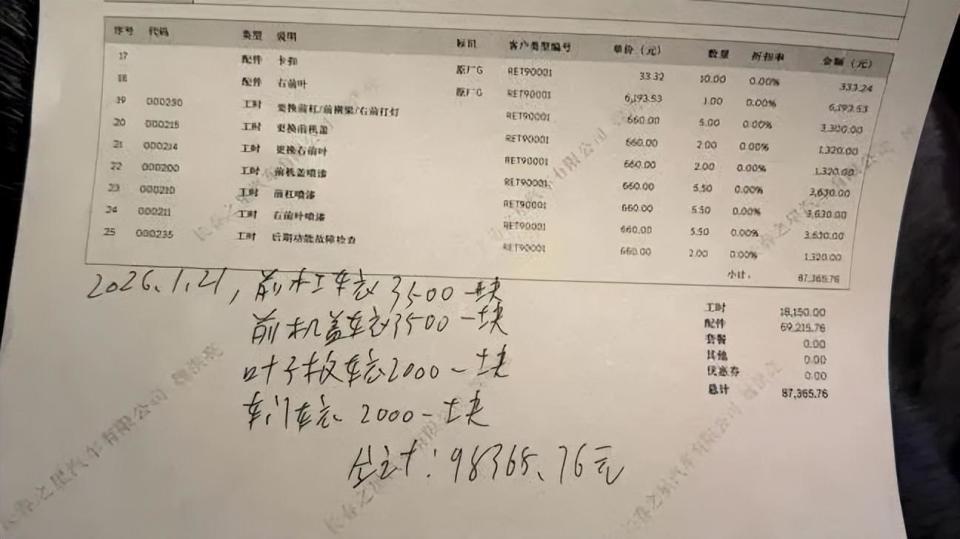 序号 代码 类型 说明 标识 客户类型编号 单价（元） 数量 折扣率 金额（元）
17 配件 卡扣 原厂G RET90001 33.32 10.00 0.00% 333.24
18 配件 右前叶 原厂G RET90001 6,193.53 1.00 0.00% 6,193.53
19 000230 工时 更换前杠/前横梁/右前灯 RET90001 660.00 5.00 0.00% 3,300.00
20 000215 工时 更换前机盖 RET90001 660.00 2.00 0.00% 1,320.00
21 000214 工时 更换右前叶 RET90001 660.00 2.00 0.00% 1,320.00
22 000200 工时 前机盖喷漆 RET90001 660.00 5.50 0.00% 3,630.00
23 000210 工时 前杠喷漆 RET90001 660.00 5.50 0.00% 3,630.00
24 000211 工时 右前叶喷漆 RET90001 660.00 5.50 0.00% 3,630.00
25 000235 工时 后期功能故障检查 RET90001 660.00 2.00 0.00% 1,320.00
小计： 87,365.76
工时 18,150.00
配件 69,215.76
套餐 0.00
其他 0.00
优惠券 0.00
总计 87,365.76
2026.1.21，前杠车衣3500一块
前机盖车衣3500一块
叶子板车衣2000一块
车门车衣 2000一块
总计：98365.76元
长春之星汽车有限公司